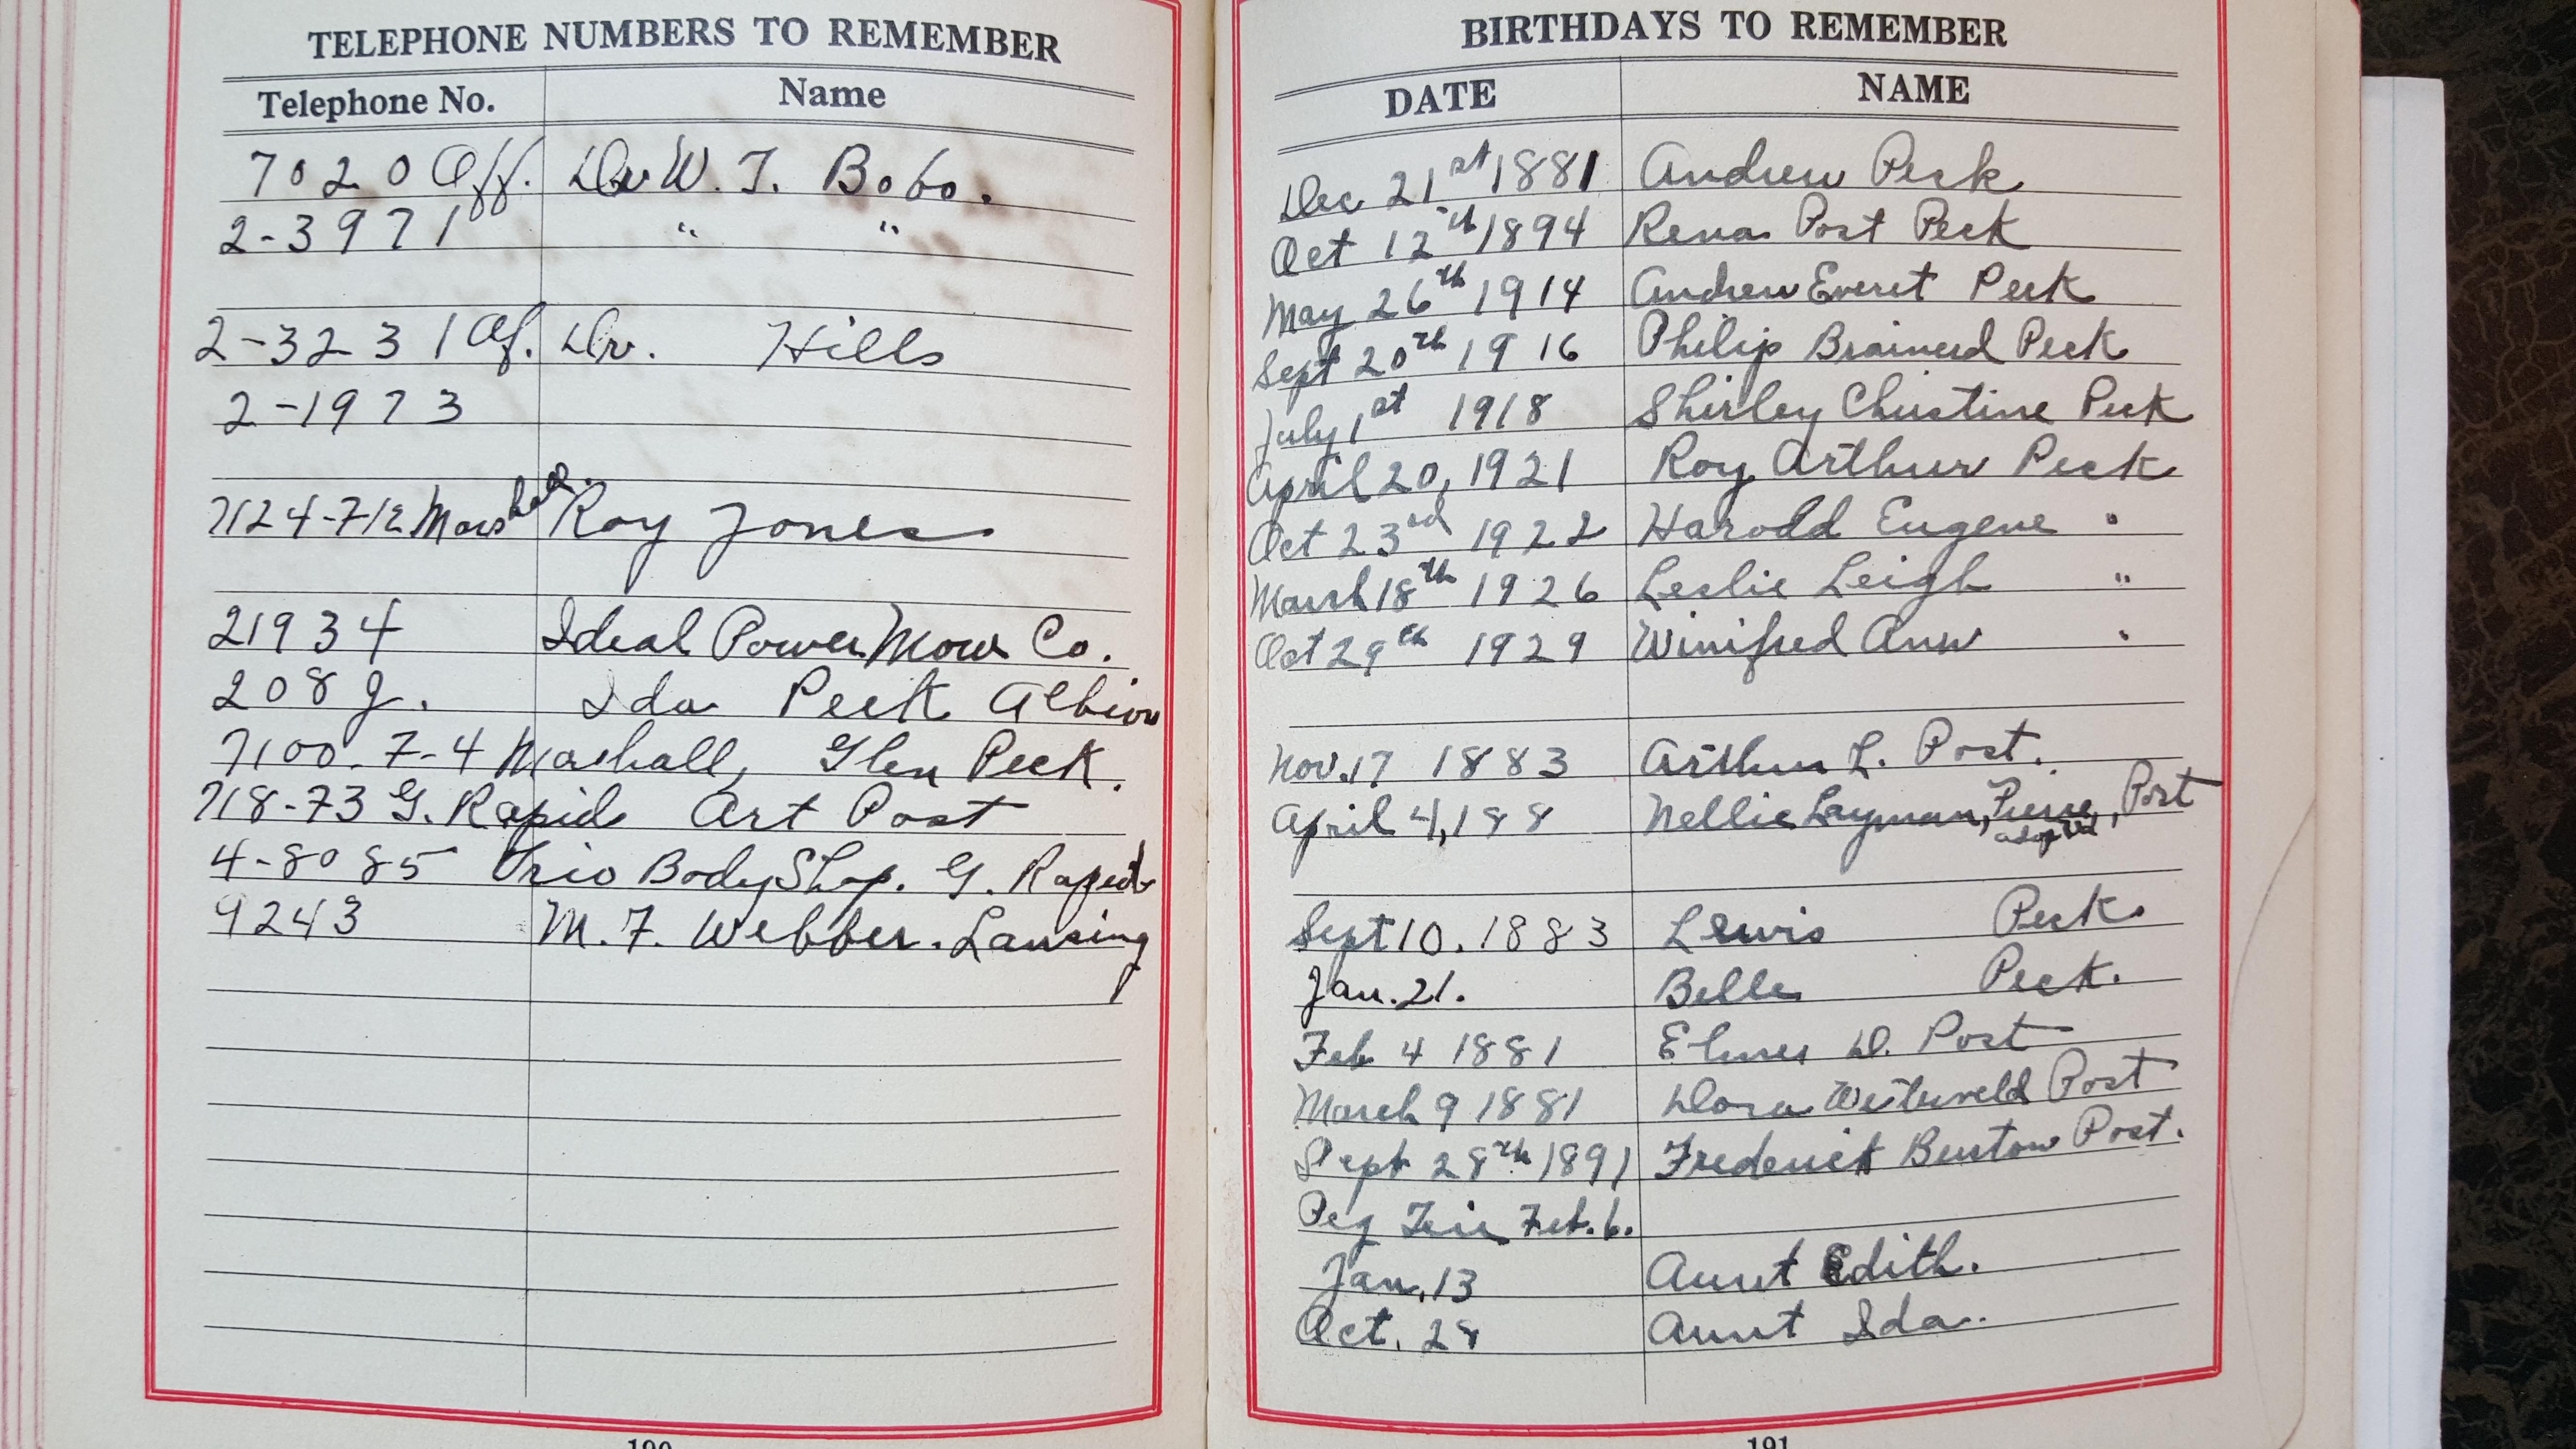 TELEPHONE NUMBERS TO REMEMBER
Telephone No. Name
7020 Off. Dr W. T. Bobo.
2-3971 " "
2-3231 Of. Dr. Hills
2-1973
7124-712 Marshall. Roy Jones
21934 Ideal Power Mow Co.
208 J. Ida Peck Albion
7100-7-4 Mashall, Glen Peck.
718-73 G. Rapids Art Post
4-8085 Orio Body Shop. G. Rapids
9243 M. F. Webber. Lansing
190
BIRTHDAYS TO REMEMBER
DATE NAME
Dec 21st 1881 Andrew Peck
Oct 12th 1894 Rena Post Peck
May 26th 1914 Andrew Everet Peck
Sept 20th 1916 Philip Brainerd Peck
July 1st 1918 Shirley Christine Peck
April 20, 1921 Roy Arthur Peck
Oct 23rd 1922 Harodd Eugene "
March 18th 1926 Leslie Leigh "
Oct 29th 1929 Winifred Ann "
Nov. 17 1883 Arthur L. Post.
April 4, 188 Nellie Layman, Post
adopted
Sept 10. 1883 Lewis Peck
Jan. 21. Belle Peck.
Feb 4 1881 Elmer D. Post
March 9 1881 Dora Westerveld Post
Sept 28th 1891 Frederick Burton Post.
Peg Feb. 6.
Jan. 13 Aunt Edith.
Oct. 28 Aunt Ida.
191